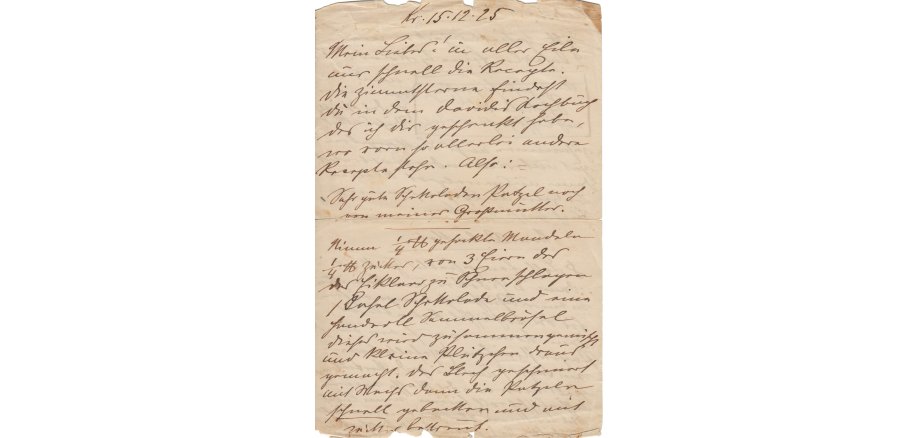 Kr. 15.12.25
Mein Liebes! in aller Eile
nur schnell die Recepte.
Die Zimmtsterne findest
du in dem Davidis Kochbuch
das ich dir geschenkt habe,
wo vorn so allerlei andere
Recepte stehn. Also:
Sehr gute Schokoladen Patzel noch
von meiner Großmutter.
Nimm 1/4 ℔ gehackte Mandeln
1/4 ℔ Zucker, von 3 Eiern das
das Eiklar zu Schnee schlagen
1 Tafel Schokolade und eine
Handvoll Semmelbrösel
dieses wird zusammengemischt
und kleine Plätzchen draus
gemacht. Das Blech geschmiert
mit Wachs dann die Patzeln
schnell gebacken und mit
Zucker bestreut.